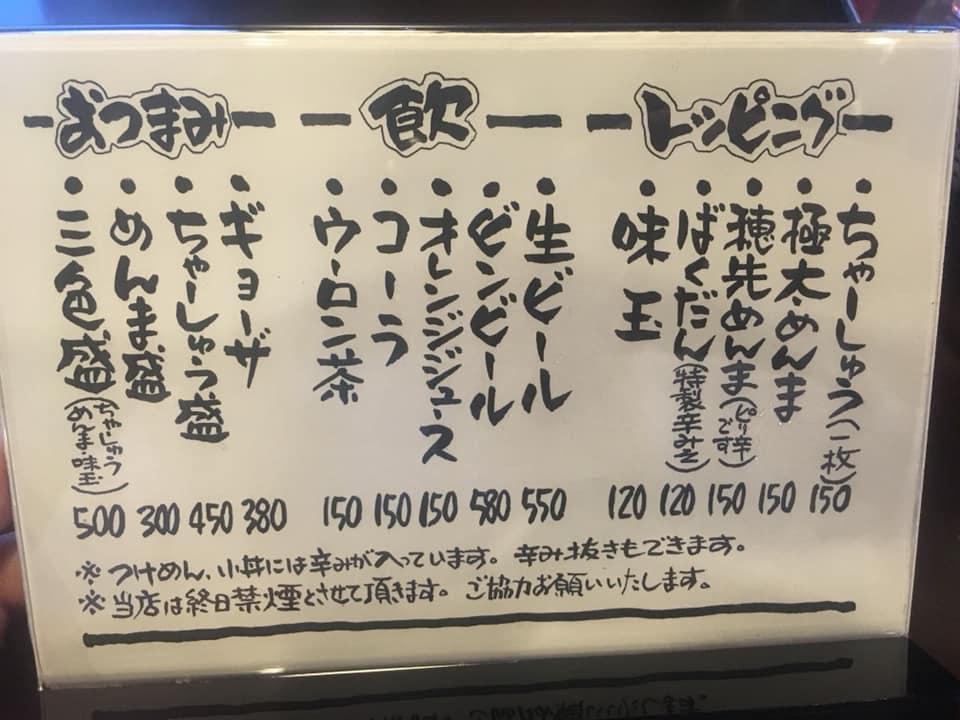 トッピング
・ちゃーしゅう(一枚) 150
・極太めんま 150
・穂先めんま(ピリ辛です) 150
・ばくだん(特製辛みそ) 120
・味玉 120
飲
・生ビール 550
・ビンビール 580
・オレンジジュース 150
・コーラ 150
・ウーロン茶 150
おつまみ
・ギョーザ 380
・ちゃーしゅう盛 450
・めんま盛 300
・三色盛(ちゃしゅうめんま・味玉) 500
※つけめん、小丼には辛みが入っています。辛み抜きもできます。
※当店は終日禁煙とさせて頂きます。ご協力お願いいたします。